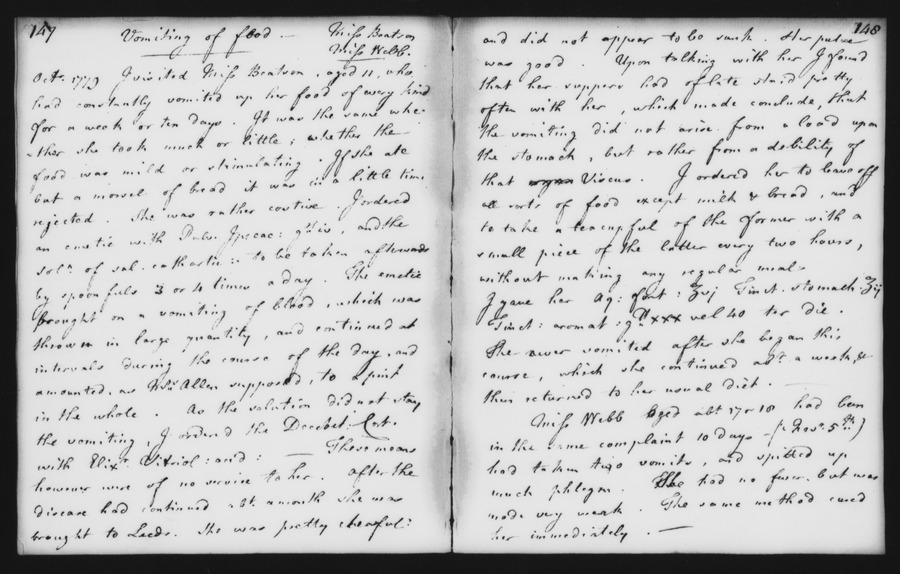 147
Vomiting of food. — Miss Beatson
Miss Webb.
Octr. 1779 I visited Miss Beatson, aged 11, who
had constantly vomited up her food of every kind
for a week or ten days. It was the same whe-
-ther she took much or little; whether the
food was mild or stimulating. If she ate
but a morsel of bread it was in a little time
rejected. She was rather costive. I ordered
an emetic with Pulv. Ipecac: and the
soln. of sal. cathartic: to be taken afterwards
by spoonfuls 3 or 4 times a day. The emetic
brought on a vomiting of blood, which was
thrown in large quantity, and continued at
intervals during the course of the day, and
amounted, as Mr. Allen supposed, to a pint
in the whole. As the solution did not stay
the vomiting, I ordered the Decoct: Cort.
with Elixr. Vitriol: and: — These means
however were of no service to her. After the
disease had continued abt. a month she was
brought to Leeds. She was pretty chearful:
148
and did not appear to be sunk. Her pulse
was good. Upon talking with her I found
that her suppers had of late staid pretty
often with her, which made conclude, that
the vomiting did not arise from a load upon
the stomach, but rather from a debility of
that Viscus. I ordered her to leave off
all sorts of food except milk & bread, and
to take a teacupful of the former with a
small piece of the latter every two hours,
without making any regular meal.
I gave her Aq: font: ʒvj Tinct. stomach: ʒij
Tinct: aromat: gtt xxx vel 40 ter die.
She never vomited after she began this
course, which she continued abt. a week, &
then returned to her usual diet. —
Miss Webb aged abt 17 or 18 had been
in the same complaint 10 days — (Novr. 5th.)
had taken two vomits, and spitted up
much phlegm. She had no fever but was
made very weak. The same method cured
her immediately. —